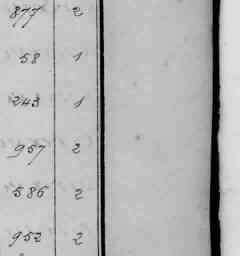 877 2
58 1
243 1
957 2
586 2
952 2